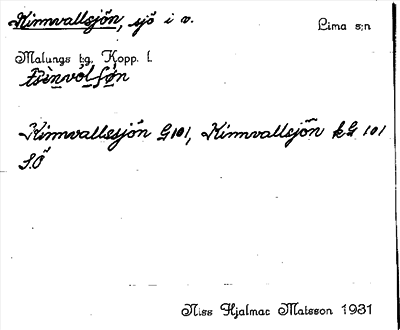 Kinnvallsjön, sjö i v. Lima s:n
Malungs tg. Kopp. l.
Kinnvallsjön G101, Kinnvallsjön kG 101
S.Ö
Niss Hjalmar Matsson 1931